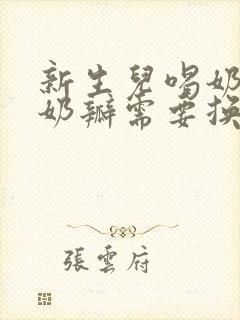 新生兒喝奶
奶瓣需要换
張雲府